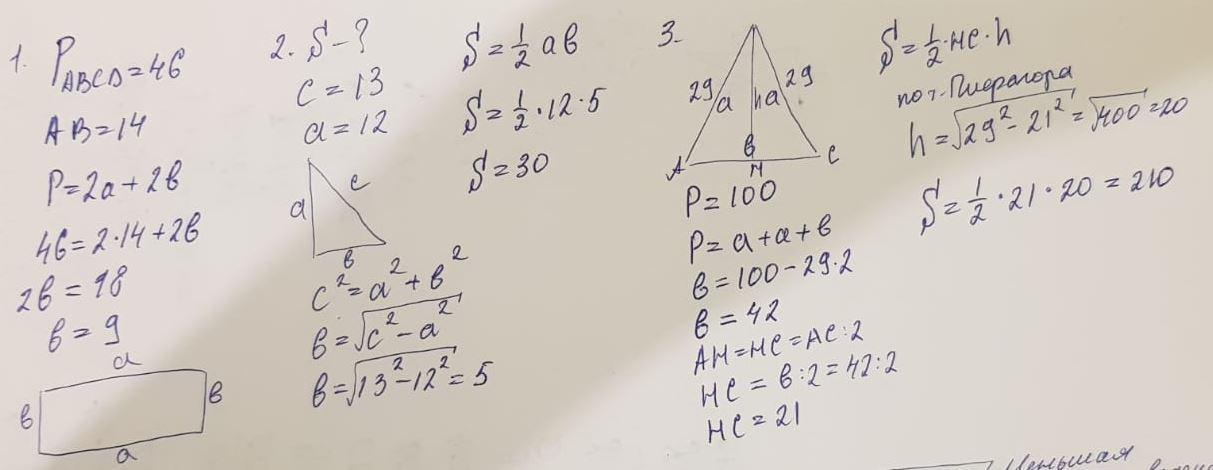 1. P_ABCD = 46
AB = 14
P = 2a + 2в
46 = 2·14 + 2в
2в = 18
в = 9
a
в
в
a
2. S - ?
c = 13
a = 12
a
c
в
c² = a² + в²
в = √c² - a²
в = √13² - 12² = 5
S = ½ aв
S = ½ · 12 · 5
S = 30
3.
29
a
h
a
29
A
в
H
C
P = 100
P = a + a + в
в = 100 - 29·2
в = 42
AH = HC = AC : 2
HC = в : 2 = 42 : 2
HC = 21
S = ½ · HC · h
по т. Пифагора
h = √29² - 21² = √400 = 20
S = ½ · 21 · 20 = 210
Меньшая